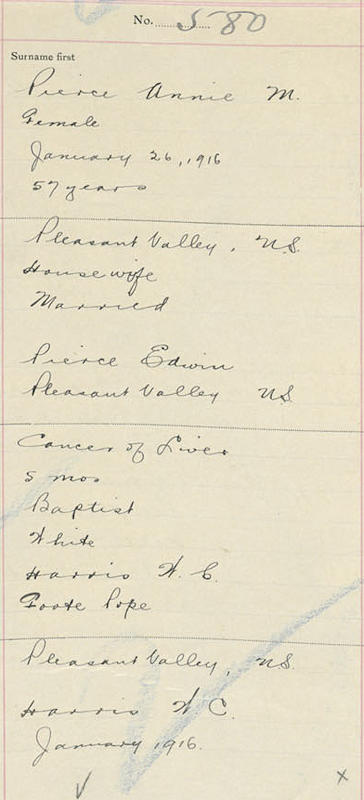 No. 580
Surname first
Pierce Annie M.
Female
January 26, 1916
57 years
Pleasant Valley, N.S.
Housewife
Married
Pierce Edwin
Pleasant Valley NS
Cancer of Liver
5 mos
Baptist
White
Harris W. C.
Foote Pope
Pleasant Valley, NS.
Harris W C.
January 1916.